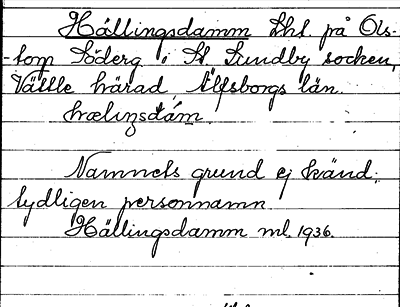 Hällingsdamm Lht. på Ols-
-torp Söderg. i St. Lundby socken,
Vättle härad, Älfsborgs län.
hælıŋsdám.
Namnets grund ej känd;
tydligen personnamn
Hällingsdamm ml. 1936.